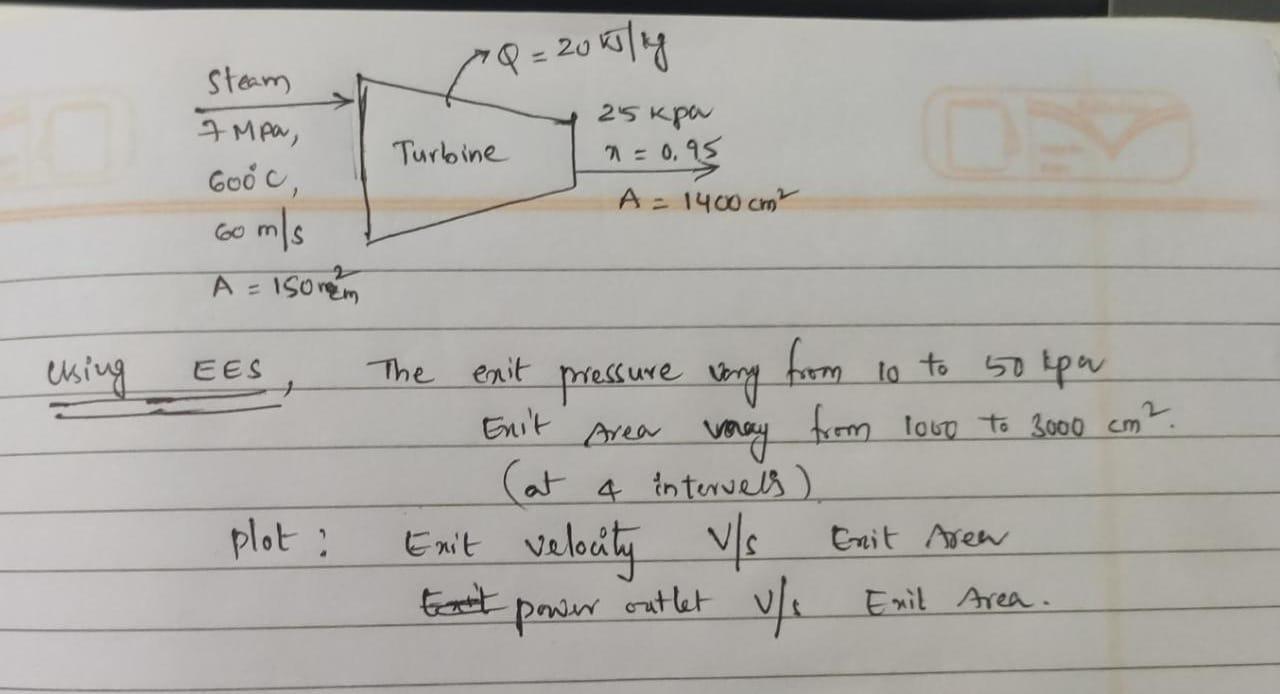 Q = 20 KJ/kg
Steam
7 MPa,
600°C,
60 m/s
A = 150 cm²
Turbine
25 kpa
x = 0.95
A = 1400 cm²
Using EES, The exit pressure vary from 10 to 50 kpa
Exit Area vary from 1000 to 3000 cm².
(at 4 intervels)
plot : Exit velocity V/s Exit Area
Exit power outlet V/s Exit Area.